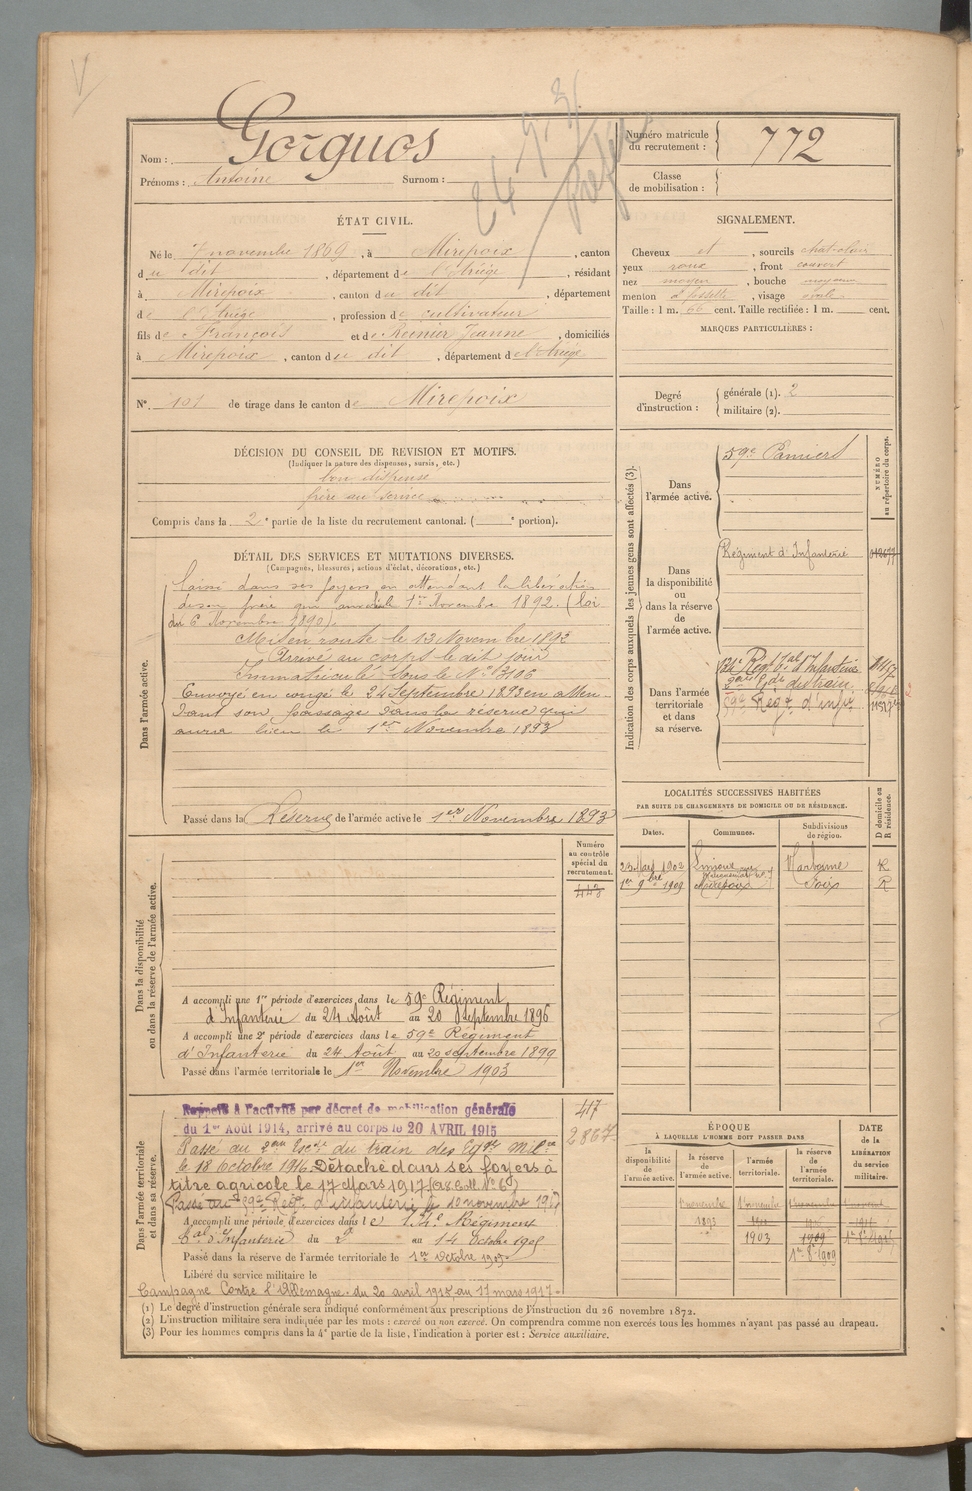 Nom : Gorguos
Prénoms : Antoine Surnom :
Numéro matricule du recrutement : 772
Classe de mobilisation :
ÉTAT CIVIL.
Né le 7 novembre 1869, à Mirepoix, canton
du dit, département de l'Ariège, résidant
à Mirepoix, canton du dit, département
de l'Ariège, profession de cultivateur
fils de François et de Reenier Jeanne, domiciliés
à Mirepoix, canton du dit, département de l'Ariège
N° 101 de tirage dans le canton de Mirepoix
SIGNALEMENT.
Cheveux et, sourcils chat. clair
yeux roux, front couvert
nez moyen, bouche moyenne
menton à fossette, visage ovale
Taille : 1 m. 66 cent. Taille rectifiée : 1 m. cent.
MARQUES PARTICULIÈRES :
Degré d'instruction : générale (1). 2
militaire (2).
DÉCISION DU CONSEIL DE REVISION ET MOTIFS.
(Indiquer la nature des dispenses, sursis, etc.)
bon dispensé
frère au service
Compris dans la 2e partie de la liste du recrutement cantonal. ( e portion).
DÉTAIL DES SERVICES ET MUTATIONS DIVERSES.
(Campagnes, blessures, actions d'éclat, décorations, etc.)
Dans l'armée active.
Laissé dans ses foyers en attendant la libération
de son frère qui aura lieu le 1er Novembre 1892. (Loi
du 6 Novembre 1890).
Mis en route le 13 Novembre 1892
Arrivé au corps le dit jour
Immatriculé sous le N° 3106
Envoyé en congé le 24 Septembre 1893 en atten-
dant son passage dans la réserve qui
aura lieu le 1er Novembre 1893
Passé dans la Réserve de l'armée active le 1er Novembre 1893
Indication des corps auxquels les jeunes gens sont affectés (3).
NUMÉRO au répertoire du corps.
Dans l'armée active.
59e Pamiers
Dans la disponibilité ou dans la réserve de l'armée active.
Régiment d'Infanterie
Dans l'armée territoriale et dans sa réserve.
134e Régt tal d'Infanterie
du train
59e Régt d'infie
LOCALITÉS SUCCESSIVES HABITÉES
PAR SUITE DE CHANGEMENTS DE DOMICILE OU DE RÉSIDENCE.
Dates. Communes. Subdivisions de région. D domicile ou R résidence.
23 Mars 1902 Limoux Narbonne R
1er 9bre 1909 Mirepoix Foix R
Dans la disponibilité ou dans la réserve de l'armée active.
Numéro au contrôle spécial du recrutement.
443
A accompli une 1re période d'exercices dans le 59e Régiment
d'Infanterie du 24 Août au 20 Septembre 1896
A accompli une 2e période d'exercices dans le 59e Régiment
d'Infanterie du 24 Août au 20 septembre 1899
Passé dans l'armée territoriale le 1er Novembre 1903
Dans l'armée territoriale et dans sa réserve.
Rappelé à l'activité par décret de mobilisation générale
du 1er Août 1914, arrivé au corps le 20 AVRIL 1915
417
2867
Passé au du train des Eqges Mires
le 18 Octobre 1916. Détaché dans ses foyers à
titre agricole le 17 Mars 1917
Passé au 59e Régt d'infanterie le 10 novembre
A accompli une période d'exercices dans le 134e Régiment
tal d'Infanterie du 2 au 14 Octobre 1905
Passé dans la réserve de l'armée territoriale le 1er Octobre 1909
Libéré du service militaire le
Campagne Contre l'Allemagne du 20 avril 1915 au 17 mars 1917
ÉPOQUE À LAQUELLE L'HOMME DOIT PASSER DANS
la disponibilité de l'armée active. la réserve de l'armée active. l'armée territoriale. la réserve de l'armée territoriale.
DATE de la LIBÉRATION du service militaire.
1er novembre 1893
1er novembre 1903
1909
1er 8bre 1909
(1) Le degré d'instruction générale sera indiqué conformément aux prescriptions de l'instruction du 26 novembre 1872.
(2) L'instruction militaire sera indiquée par les mots : exercé ou non exercé. On comprendra comme non exercés tous les hommes n'ayant pas passé au drapeau.
(3) Pour les hommes compris dans la 4e partie de la liste, l'indication à porter est : Service auxiliaire.